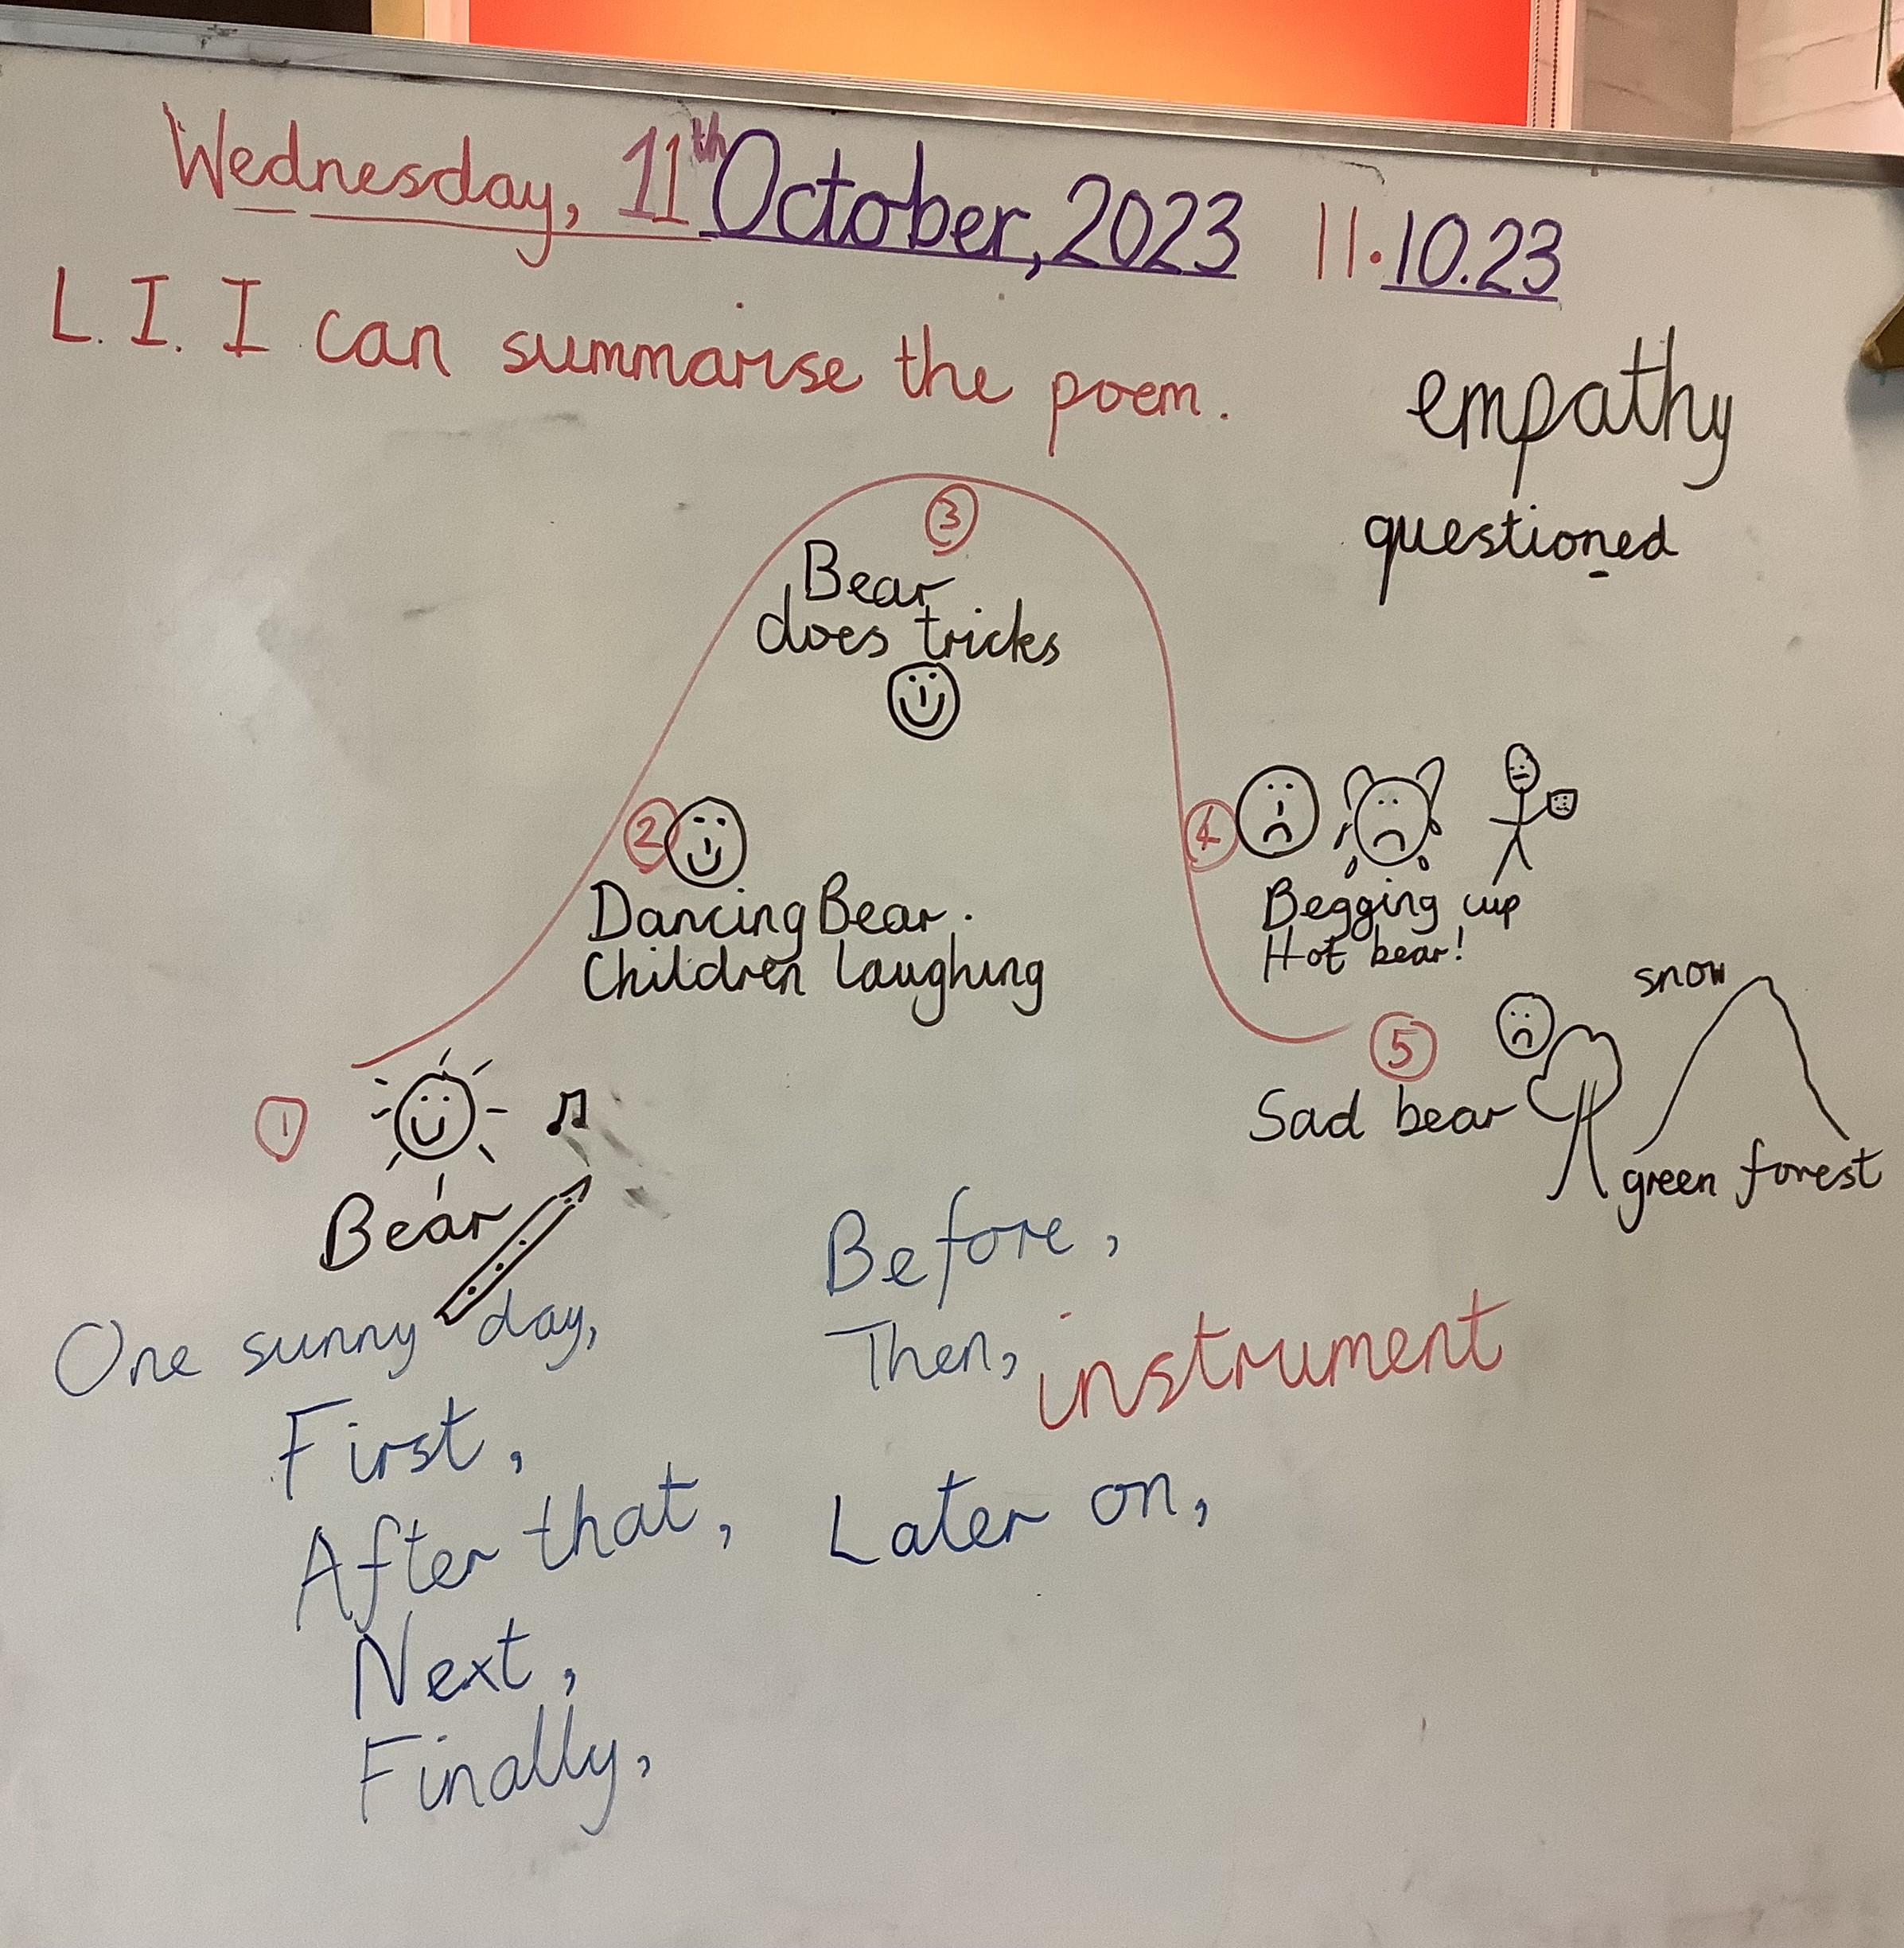 Wednesday, 11th October, 2023 11.10.23
L.I. I can summarise the poem.
empathy
questioned
3
Bear
does tricks
2
Dancing Bear.
Children laughing
4
Begging cup
Hot bear!
snow
5
Sad bear
green forest
1
Bear
One sunny day,
First,
After that,
Next,
Finally,
Before,
Then, instrument
Later on,